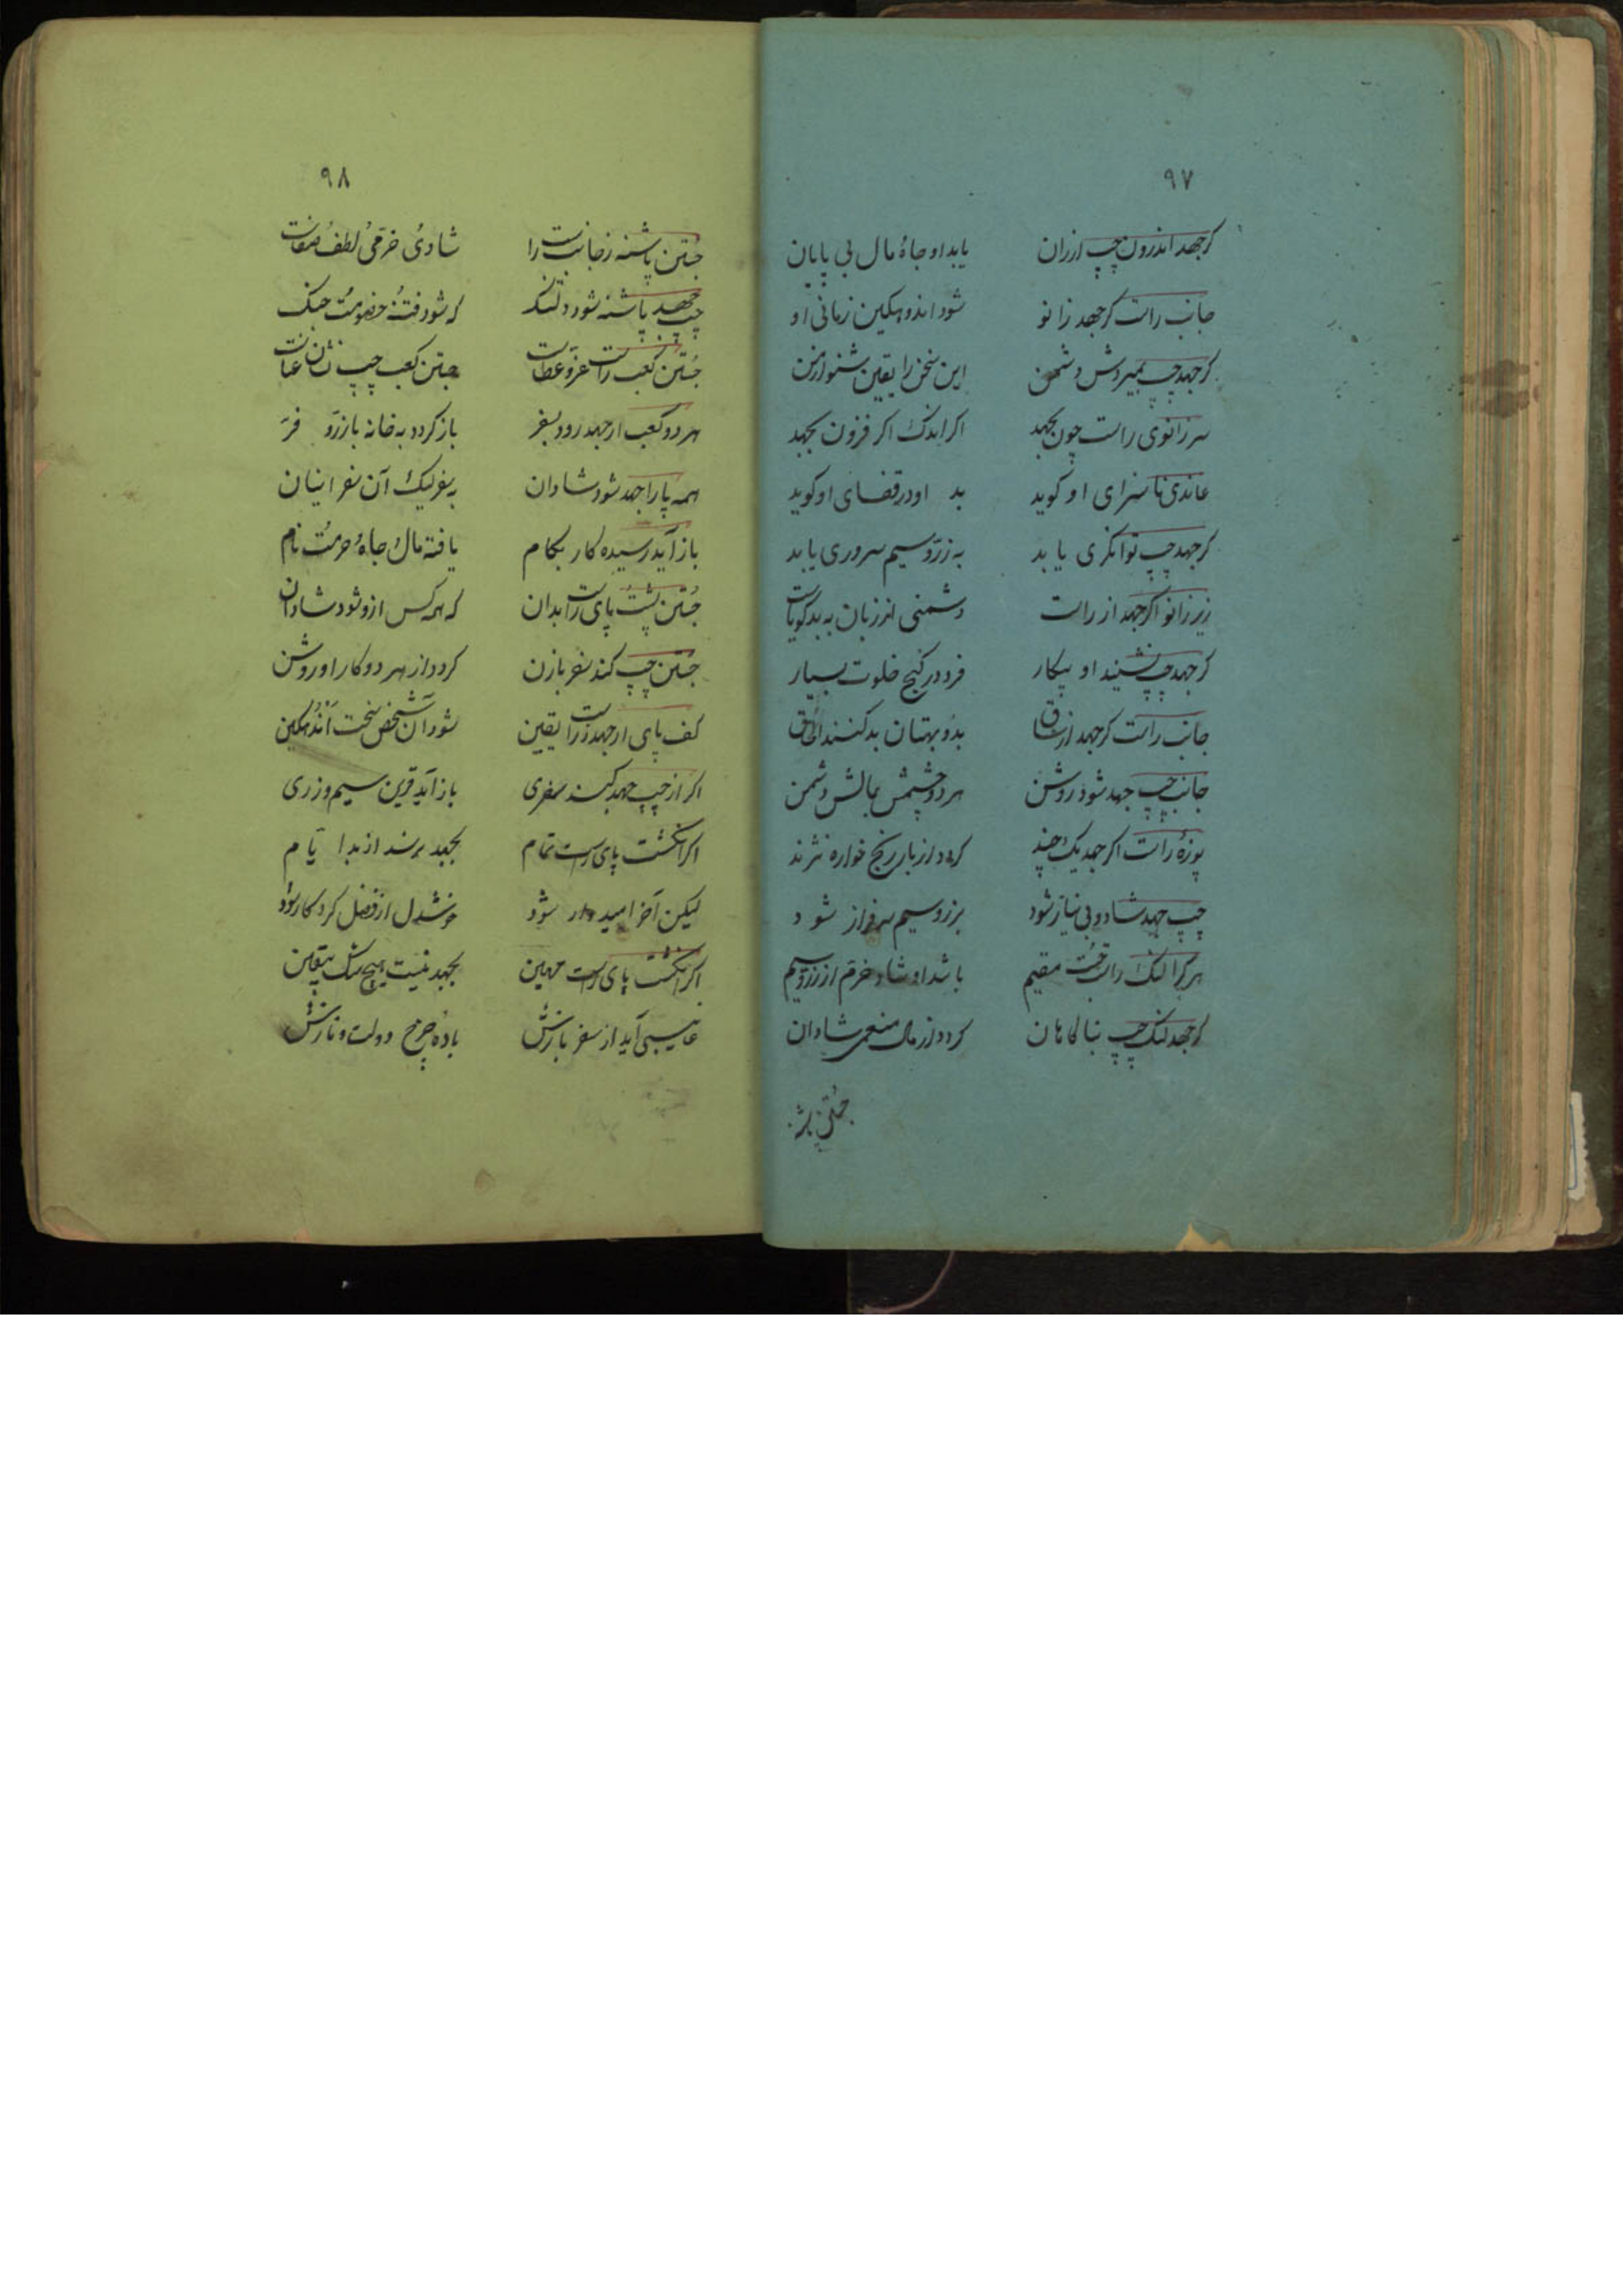 ۹۷
کرجهد اندرون چپ ازران یابد او جاهُ مال بی پایان
جانب راست کرجهد زانو شود اندوهکین زمانی او
کرجهد چپ بمیردش دشمن این سخن را یقین شنو از من
سر زانوی راست چون بجهد اکر اندک اکر فزون بجهد
عاندی ناسزای او کوید بد او در قفای او کوید
کرجهد چپ توانکری یابد به زرّ و سیم سروری یابد
زیر زانو اکر جهد از راست دشمنی از زبان به بدکویاست
کرجهد چپ نشیند او بیکار فرد در کنج خلوت بسیار
جانب راست کرجهد از ساق بدُ و بهتان بد کنند
جانب چپ جهد شود روشن هر دو چشمش بمالش دشمن
پوزهٔ راست اکر جهد یک چند کردد از بار رنج خواره نژند
چپ جهد شاد و بی نیاز شود بزر و سیم سرفراز شود
هر کرا لنک راست جُست مقیم باشد او شاد خرّم از زر و سیم
کرجهد لنک چپ بناکاهان کردد از مال منعمی شادان
۹۸
جُستن پاشنه زجانب راست شادیُ خرّمیُ لطفُ صفاست
چپ جهد پاشنه شود دلتنک که شود فتنهُ خصومتُ جنک
جُستن کعب راست عزّ و عطاست جستن کعب چپ نشان عناست
هر دو کعب ار جهد رود بسفر باز کردد به خانه با زرّو فرّ
همه پا را جهد شود شادان بسفر لیک آن سفر آنسان
باز آید رسیده کار بکام یافته مالُ جاهُ حرمتُ نام
جُستن پشت پای راست بدان که همه کس ازو شود شادان
جستن چپ کند سفر با زن کردد از هر دو کار او روشن
کف پای ار جهد ز راست یقین شود آن شخص سخت اندُهکین
اکر از چپ جهد کند سفری باز آید قرین سیم و زری
اکر انکشت پای راست تمام بجهد
لیکن آخر امیدوار شود خوشدل از فضل کردکار شود
اکر انکشت پای راست مهین بجهد نیست هیچ شک بیقین
غایبی آید از سفر بازش دولت و نازش